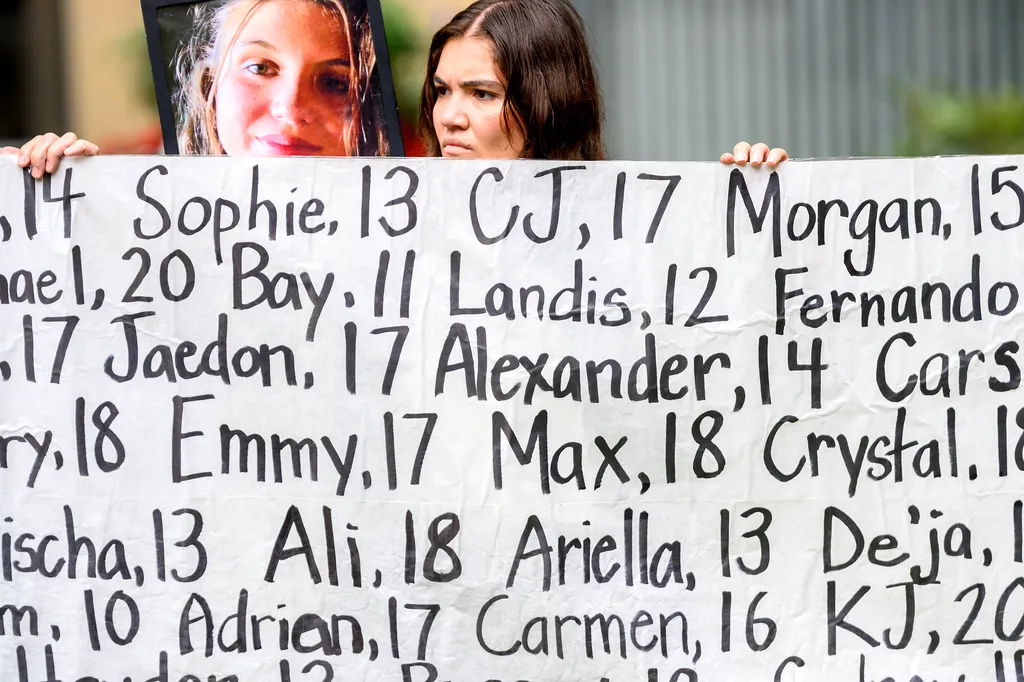 , 14 Sophie, 13 CJ, 17 Morgan, 15
ael, 20 Bay, 11 Landis, 12 Fernando
, 17 Jaedon, 17 Alexander, 14 Cars
ry, 18 Emmy, 17 Max, 18 Crystal, 18
ischa, 13 Ali, 18 Ariella, 13 De'ja, 1
m, 10 Adrian, 17 Carmen, 16 KJ, 20
Hayden